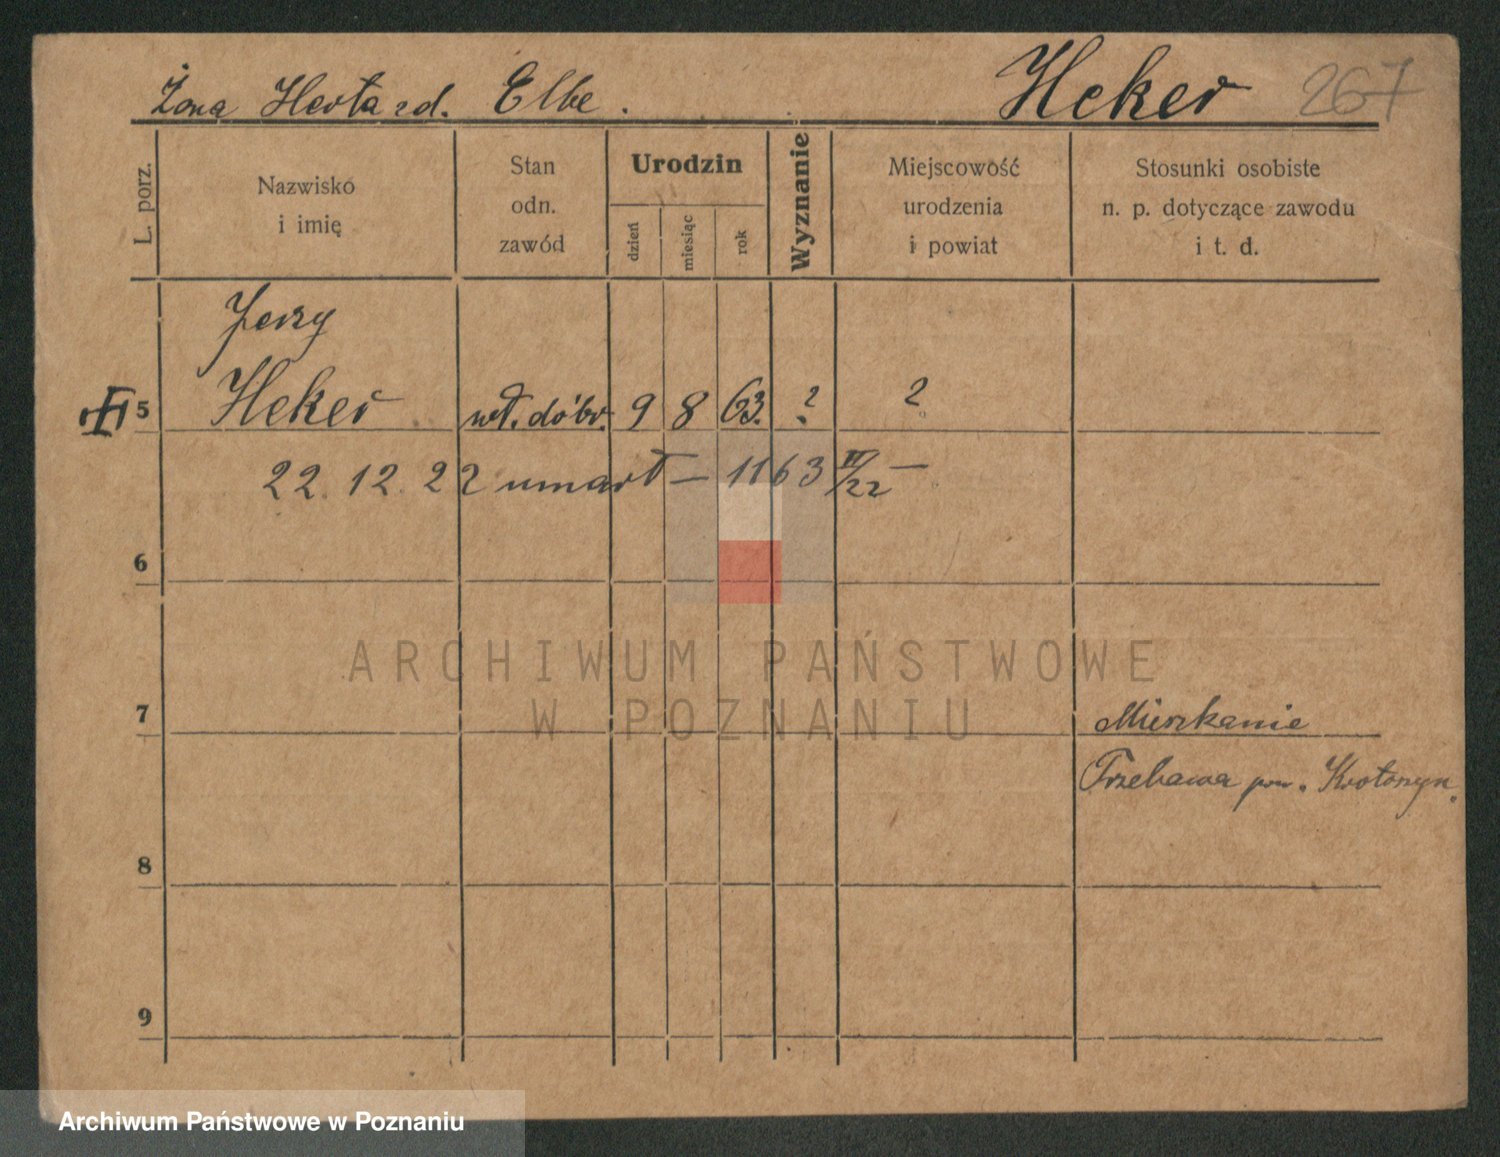 Żona Herta zd. Elbe. Heker 267
L. porz.
Nazwisko
i imię
Stan
odn.
zawód
Urodzin
dzień
miesiąc
rok
Wyznanie
Miejscowość
urodzenia
i powiat
Stosunki osobiste
n. p. dotyczące zawodu
i t. d.
Jerzy
5 Heker wł. dóbr. 9 8 63. ? ?
22. 12. 22 umarł – 1163 IV/22 –
6
ARCHIWUM PAŃSTWOWE
W POZNANIU
7 Mieszkanie
Trzebawa pow. Krotoszyn.
8
9
Archiwum Państwowe w Poznaniu